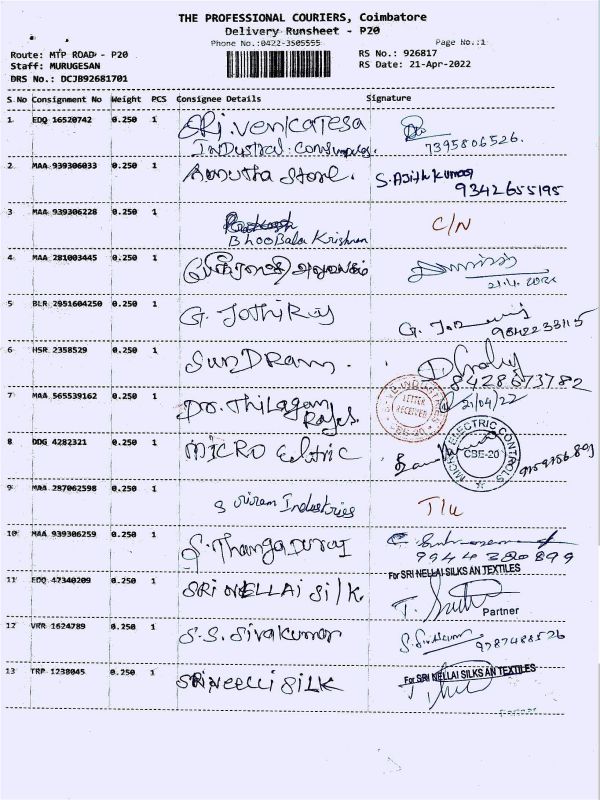 THE PROFESSIONAL COURIERS, Coimbatore
Delivery Runsheet - P20
Phone No.:0422-3505555 Page No.:1
Route: MTP ROAD - P20 RS No.: 926817
Staff: MURUGESAN RS Date: 21-Apr-2022
DRS No.: DCJB92681701
S No Consignment No Weight PCS Consignee Details Signature
1 EDQ 16520742 0.250 1 SRi. VenkaTesa
INDUSTRIAL. Consumples. 7395806526.
2 MAA 939306033 0.250 1 Amutha Store. S. Ajith Kumar
9342655195
3 MAA 939306228 0.250 1 C/N
BhooBala Krishnan
4 MAA 281003445 0.250 1
21.4.2022
5 BLR 2951604250 0.250 1 G. JoThiRaj
9842233115
6 HSR 2358529 0.250 1 SunDRam.
8428673782
7 MAA 565539162 0.250 1 Dr. Thilagam 21/04/22
Rajes. LETTER RECEIVED
8 DDG 4282321 0.250 1 MICRO Eltric MICRO ELECTRIC CONTROLS
CBE-20
9 MAA 287062598 0.250 1 Sriram Industries
10 MAA 939306259 0.250 1 S. ThangaDuraj
9944320899
For SRI NELLAI SILKS AN TEXTILES
11 EDQ 47340209 0.250 1 SRi NELLAI Silk.
Partner
12 VRR 1624789 0.250 1 S.S. Sivakumar
9787488526
13 TRP 1238045 0.250 1 SRi Neelli SiLK For SRI NELLAI SILKS AN TEXTILES